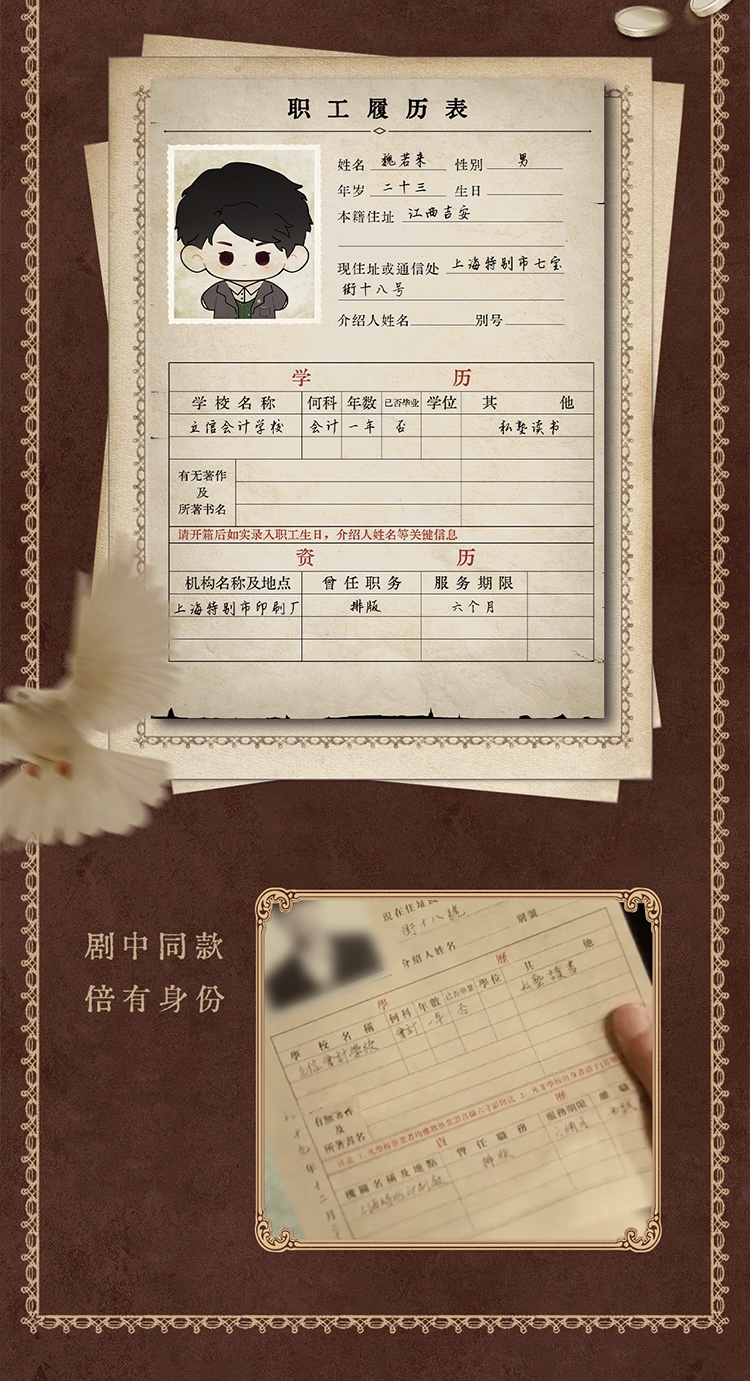 职工履历表
姓名 魏若来 性别 男
年岁 二十三 生日
本籍住址 江西吉安
现住址或通信处 上海特别市七宝
街十八号
介绍人姓名 别号
学 历
学校名称 何科 年数 已否毕业 学位 其 他
立信会计学校 会计 一年 否 私塾读书
有无著作
及
所著书名
请开箱后如实录入职工生日，介绍人姓名等关键信息
资 历
机构名称及地点 曾任职务 服务期限
上海特别市印刷厂 排版 六个月
剧中同款
倍有身份
現在住址或
街十八號
介紹人姓名 別號
學 歷
學校名稱 何科 年數 已否畢業 學位 其 他
立信會計學校 會計 一年 否 私塾讀書
有無著作
及
所著書名
資 歷
機關名稱及地點 曾任職務 服務期限 離職